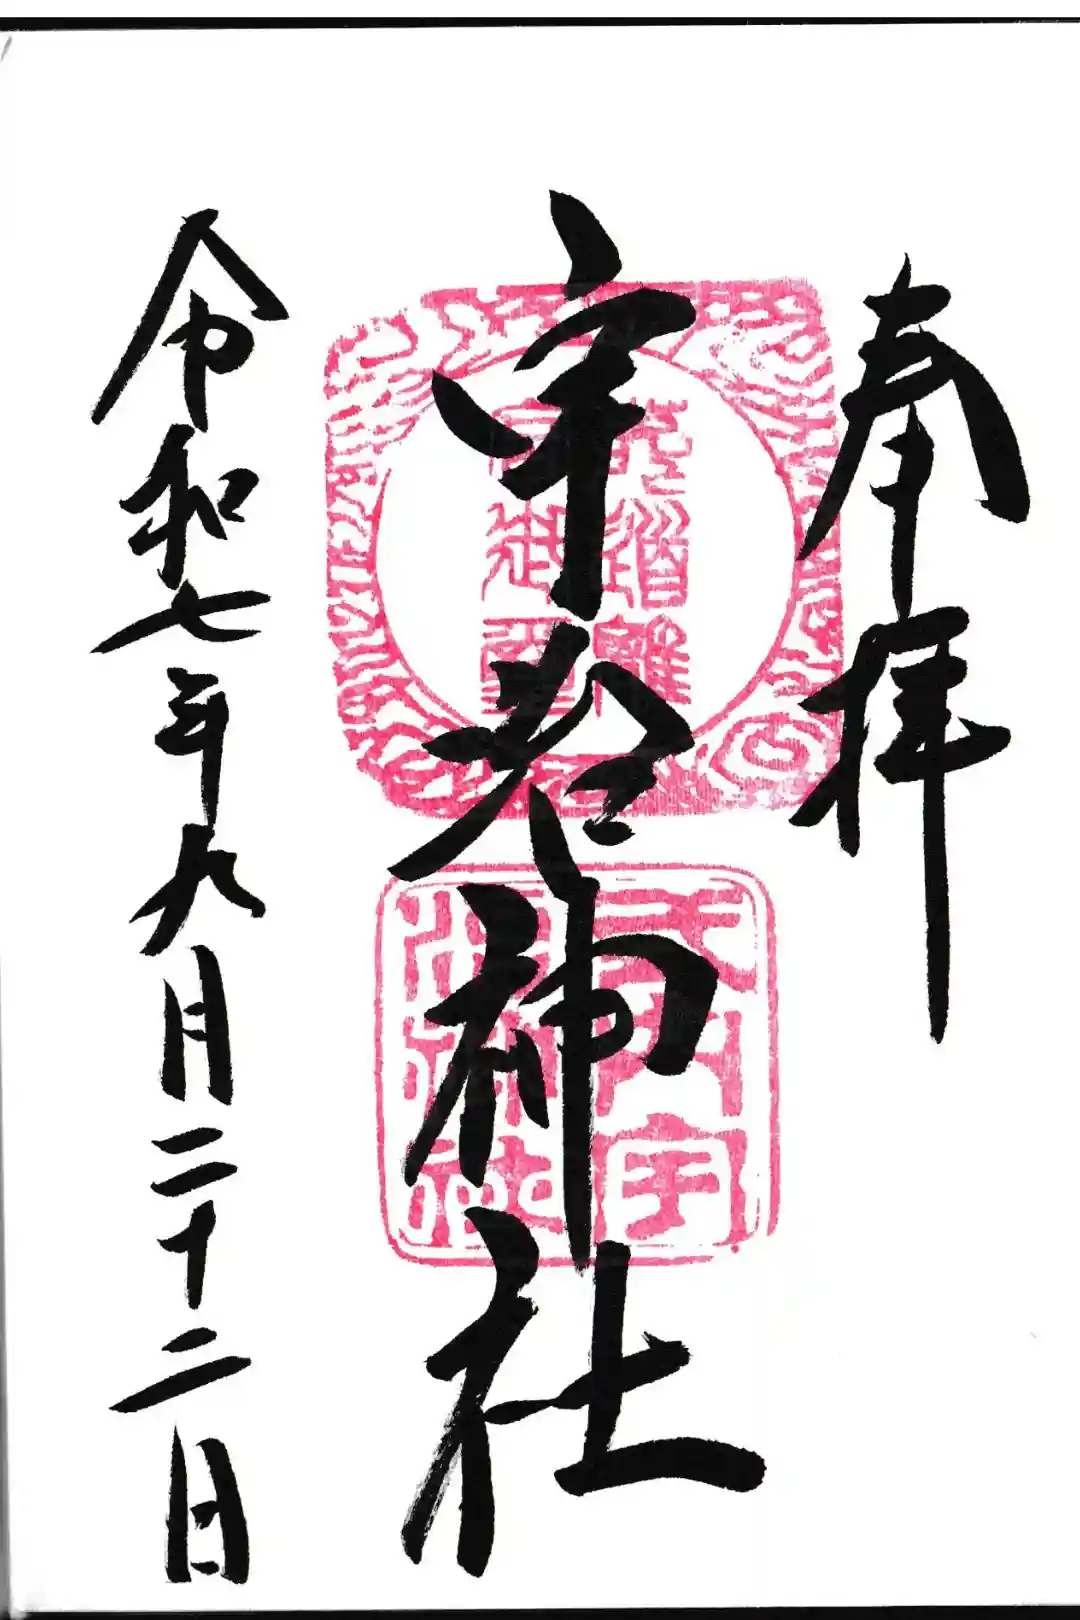 奉拝
宇治神社
式内宇
治神社
令和七年九月二十二日